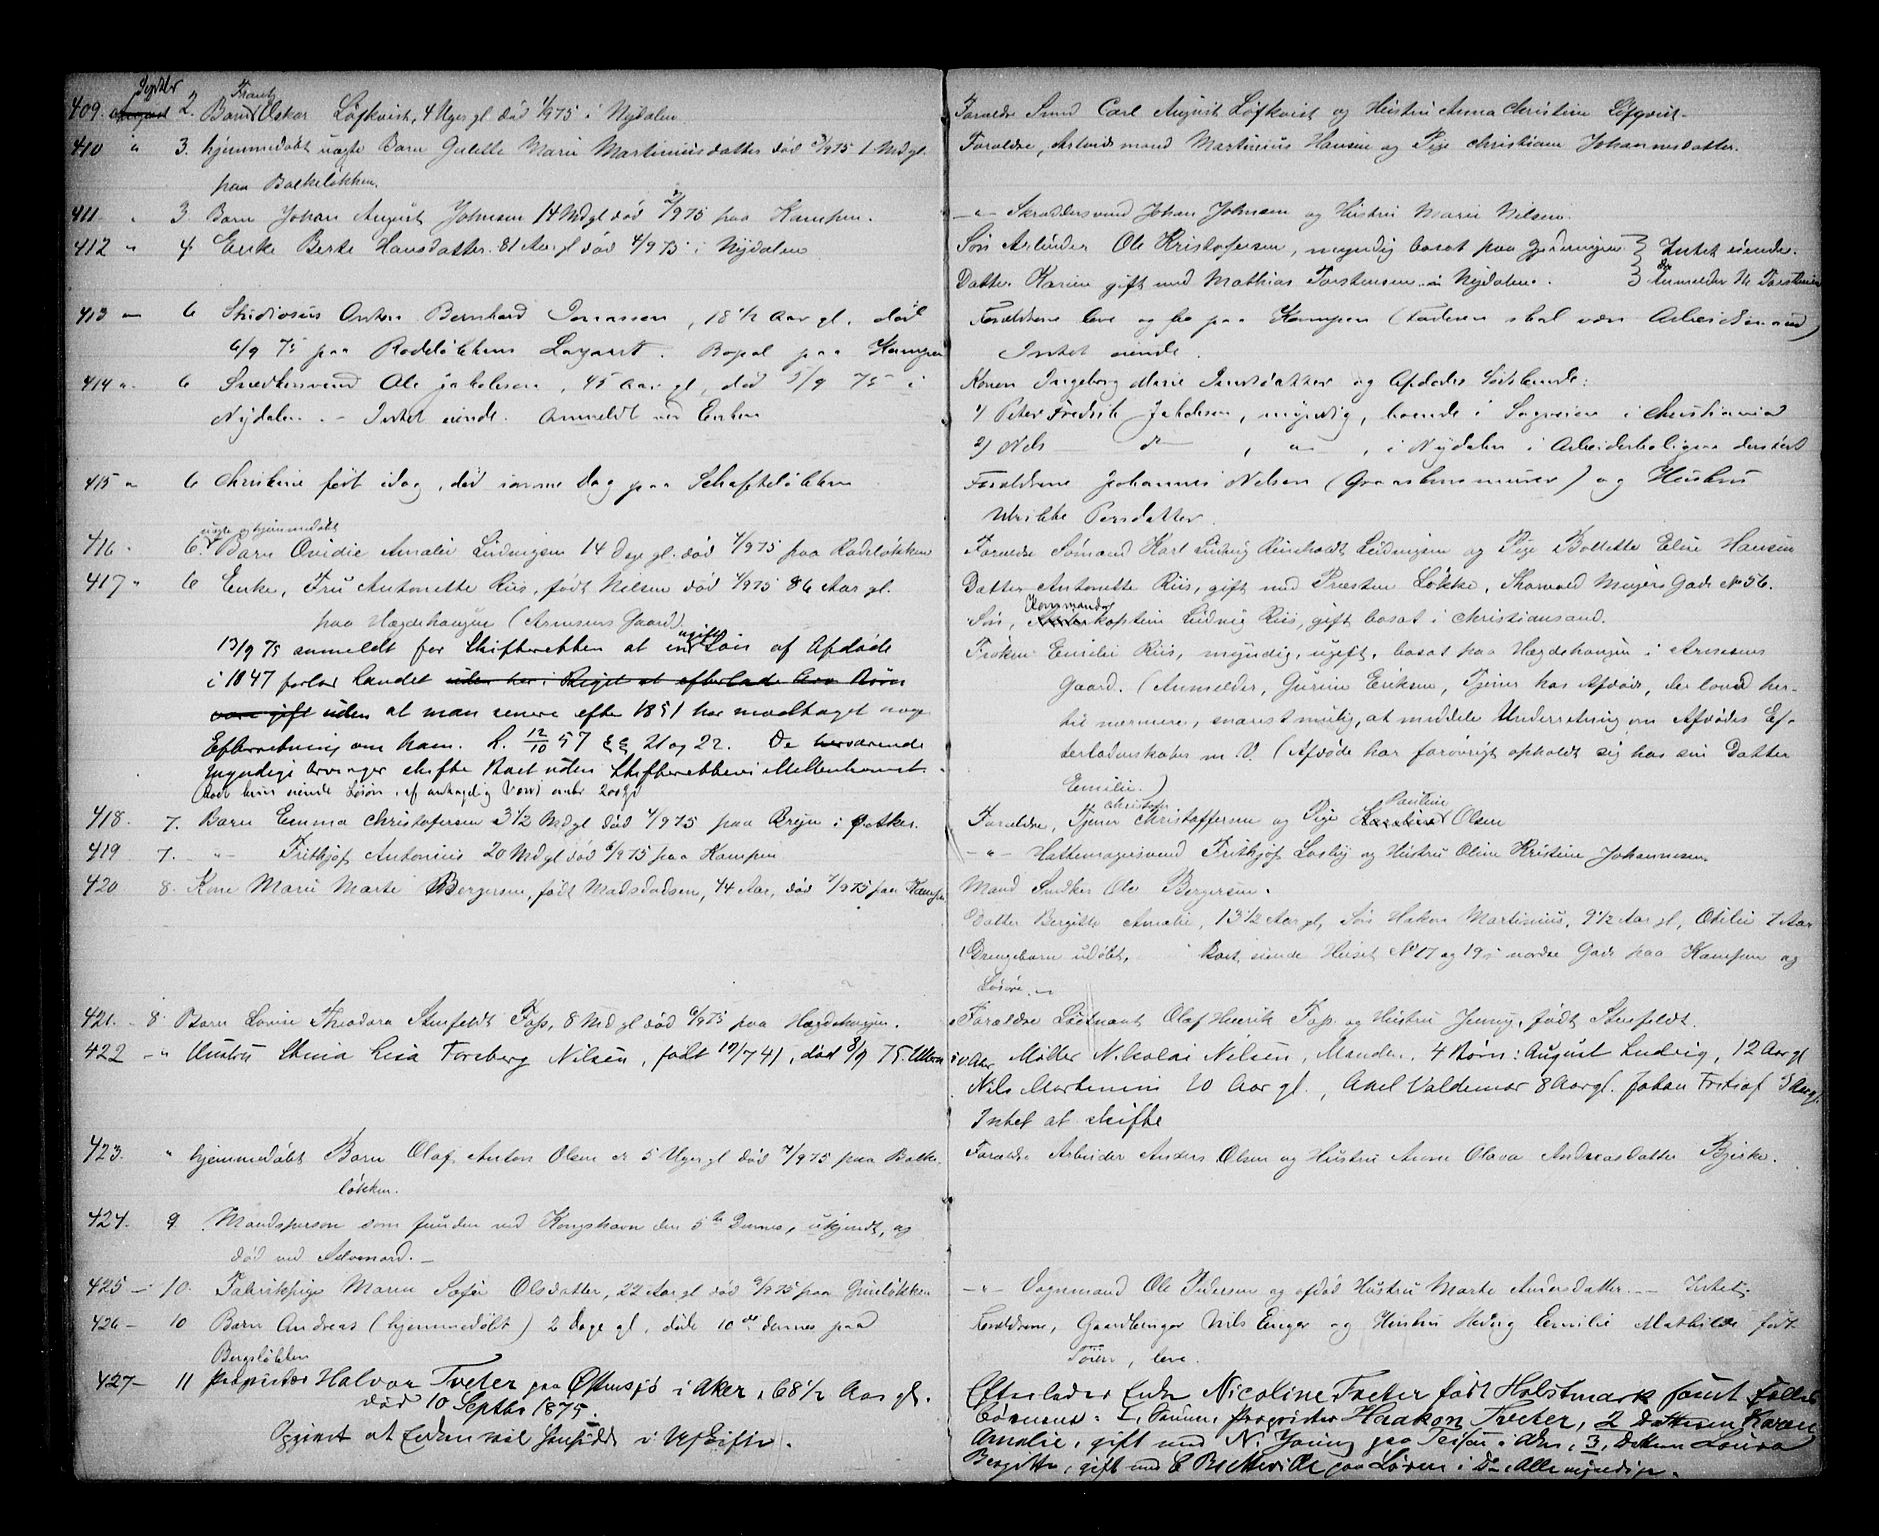 Septbr
409. August 2. Barn Frantz Oskar Løfkvist, 4 Uger gl. død 1/9 75 i Nydalen
Forældre Smed Carl August Løfkvist og Hustru Anna Christine Løfqvist.
410 " 3. hjemmedøbt uægte Barn Gulette Marie Martiniusdatter død 3/9 75 1 Mdgl.
paa Bakkeløkken.
Forældre, Arbeidsmand Martinius Hansen og Pige Christiane Johannesdatter.
411 " 3 Barn Johan August Johnsen 14 Mdgl død 2/9 75 paa Kampen.
-"- Skræddersvend Johan Johnsen og Hustru Marie Nilsen.
412 " 4. Enke Berte Hansdatter 81 Aar gl død 4/9 75 i Nydalen
Søn Arbeider Ole Kristofersen, myndig bosat paa Intet eiende.
Datter Karen gift med Mathias Torstensen i Nydalen. Anmelder M. Torstensen
413 — 6 Studiosus Anton Bernhard Jonassen, 18 1/2 Aar gl. død
6/9 75 paa Rodeløkkens Lazaret. Bopæl paa Kampen
Forældrene leve og bo paa Kampen (Faderen skal være Arbeidsmand)
Intet eiende.
414 " 6 Snedkersvend Ole Jakobsen, 45 Aar gl, død 5/9 75 i
Nydalen. - Intet eiende. Anmeldt ved Enken
Konen Ingeborg Marie og Afdødes Sødskende:
1) Peter Fredrik Jakobsen, myndig, boende i Sagveien i Christiania
2) Nels — do — , " — , i Nydalen i Arbeiderboligen dersteds
415 " 6 Christine født idag, død samme Dag paa Schafteløkken
Forældrene Johannes Nelsen (Graastensmurer) og Hustru
Ulrikke Persdatter.
416 " 6. uægte og hjemmedøbt Barn Ovidie Amalie Ludvigsen 14 Dage gl. død 4/9 75 paa Rodeløkken
Forældre Sømand Karl Ludvig Reinholdt Ludvigsen og Pige Bollette Elise Hansen
417 " 6 Enke, Fru Antonette Riis, født Nelsen død 4/9 75 86 Aar gl.
paa Hægdehaugen (Arnesens Gaard)
13/9 75 anmeldt for Skifteretten at en ugift Søn af Afdøde
i 1847 forlod Landet uden her i Riget at efterlade sig Børn
være gift uden at man senere efter 1851 har modtaget noge
Efterretning om ham. L. 12/10 57 §§ 21 og 22. De herværende
myndige Arvinger skifte Boet uden Skifterettens Mellemkomst.
Datter Antonette Riis, gift med Præsten Løkke, Thorvald Meyers Gade No 56.
Søn, Kommandørkaptein Ludvig Riis, gift bosat i Christiansand.
Frøken Emilie Riis, myndig, ugift, bosat paa Hægdehaugen i Arnesens
Gaard. (Anmelder, Gurine Eriksen, Tjener hos Afdøde, der loved her-
til nærmere, snarest mulig, at meddele Underretning om Afdødes Ef-
terladenskaber m. V. (Afdøde har forøvrigt opholdt sig hos sin Datter
Emilie.)
418. 7. Barn Emma Christofersen 3 1/2 Mdgl død 4/9 75 paa Bryn i Østaker.
Forældre, Tjener Christian Christoffersen og Pige Karoline Pauline Olsen
419 7. -"- Frithjof Antonius 20 Mdgl død 6/9 75 paa Kampen
-"- Hattemagersvend Frithjof Losby og Hustru Oline Kristine Johannesen.
420 8. Kone Marie Marte Børgersen, født Madsdadsen, 44 Aar, død 7/9 75 paa Kampen
Mand Snedker Ole Børgersen.
Datter Bergitte Amalie, 13 1/2 Aar gl, Søn Hakon Martinius, 9 1/2 Aar gl, Otilie 7 Aar
1 Drengebarn udøbt, Boet eiende Huset No 17 og 19 i nordre Gade paa Kampen og
Løsøre.—
421. - 8. Barn Lovise Theodora Stenfeldt Foss, 8 Mdgl død 6/9 75 paa Hægdehaugen.
Forældre Løitnant Olaf Henrik Foss og Hustru Jenny, født Stenfeldt.
422 — " Hustru Stina Lisa Forsberg Nilsen, født 19/7 41, død 8/9 75
Møller Nikolai Nilsen, Manden, 4 Børn: August Ludvig, 12 Aar gl
Nils Martinius 10 Aar gl., Axel Valdemar 8 Aar gl. Johan Fritjof 3 Aar gl.
Intet at skifte
423. " hjemmedøbt Barn Olaf Anton Olsen 5 Uger gl død 7/9 75 paa Bakke-
løkken.
Forældre Arbeider Anders Olsen og Hustru Anne Olava Andreasdatter Bjerke.
424. 9 Mandsperson som funden ved Kongshavn den 5te Dennes, ukjendt, og
død ved Selvmord.—
425 — 10. Fabrikpige Maren Sofie Olsdatter, 22 Aar gl død 9/9 75 paa Grüneløkken
-"- Vognmand Ole Pedersen og afdød Hustru Marte Andersdatter. — Intet.
426 — 10 Barn Andreas (hjemmedøbt) 2 Dage gl, døde 10de dennes paa
Bergsløkken
Forældrene, Gaardbruger Nils Enger og Hustru Hedvig Emilie Mathilde født
leve.
427 — 11 Proprietær Halvor Tveter paa Østensjø i Aker, 68 1/2 Aar gl.
død 10 Septbr 1875.
Opgivet at Enken vil hensidde i Uskifte.
Efterlader Enke Nicoline Tveter født Holstmark samt Fælles
børnene: 1, Sønnen, Proprietær Haakon Tveter, 2 Datteren Karen
Amalie, gift med N. Young paa Teisen i Aker, 3, Datteren Lovisa
Bergitte, gift med C. paa Løren i Do. Alle myndige.